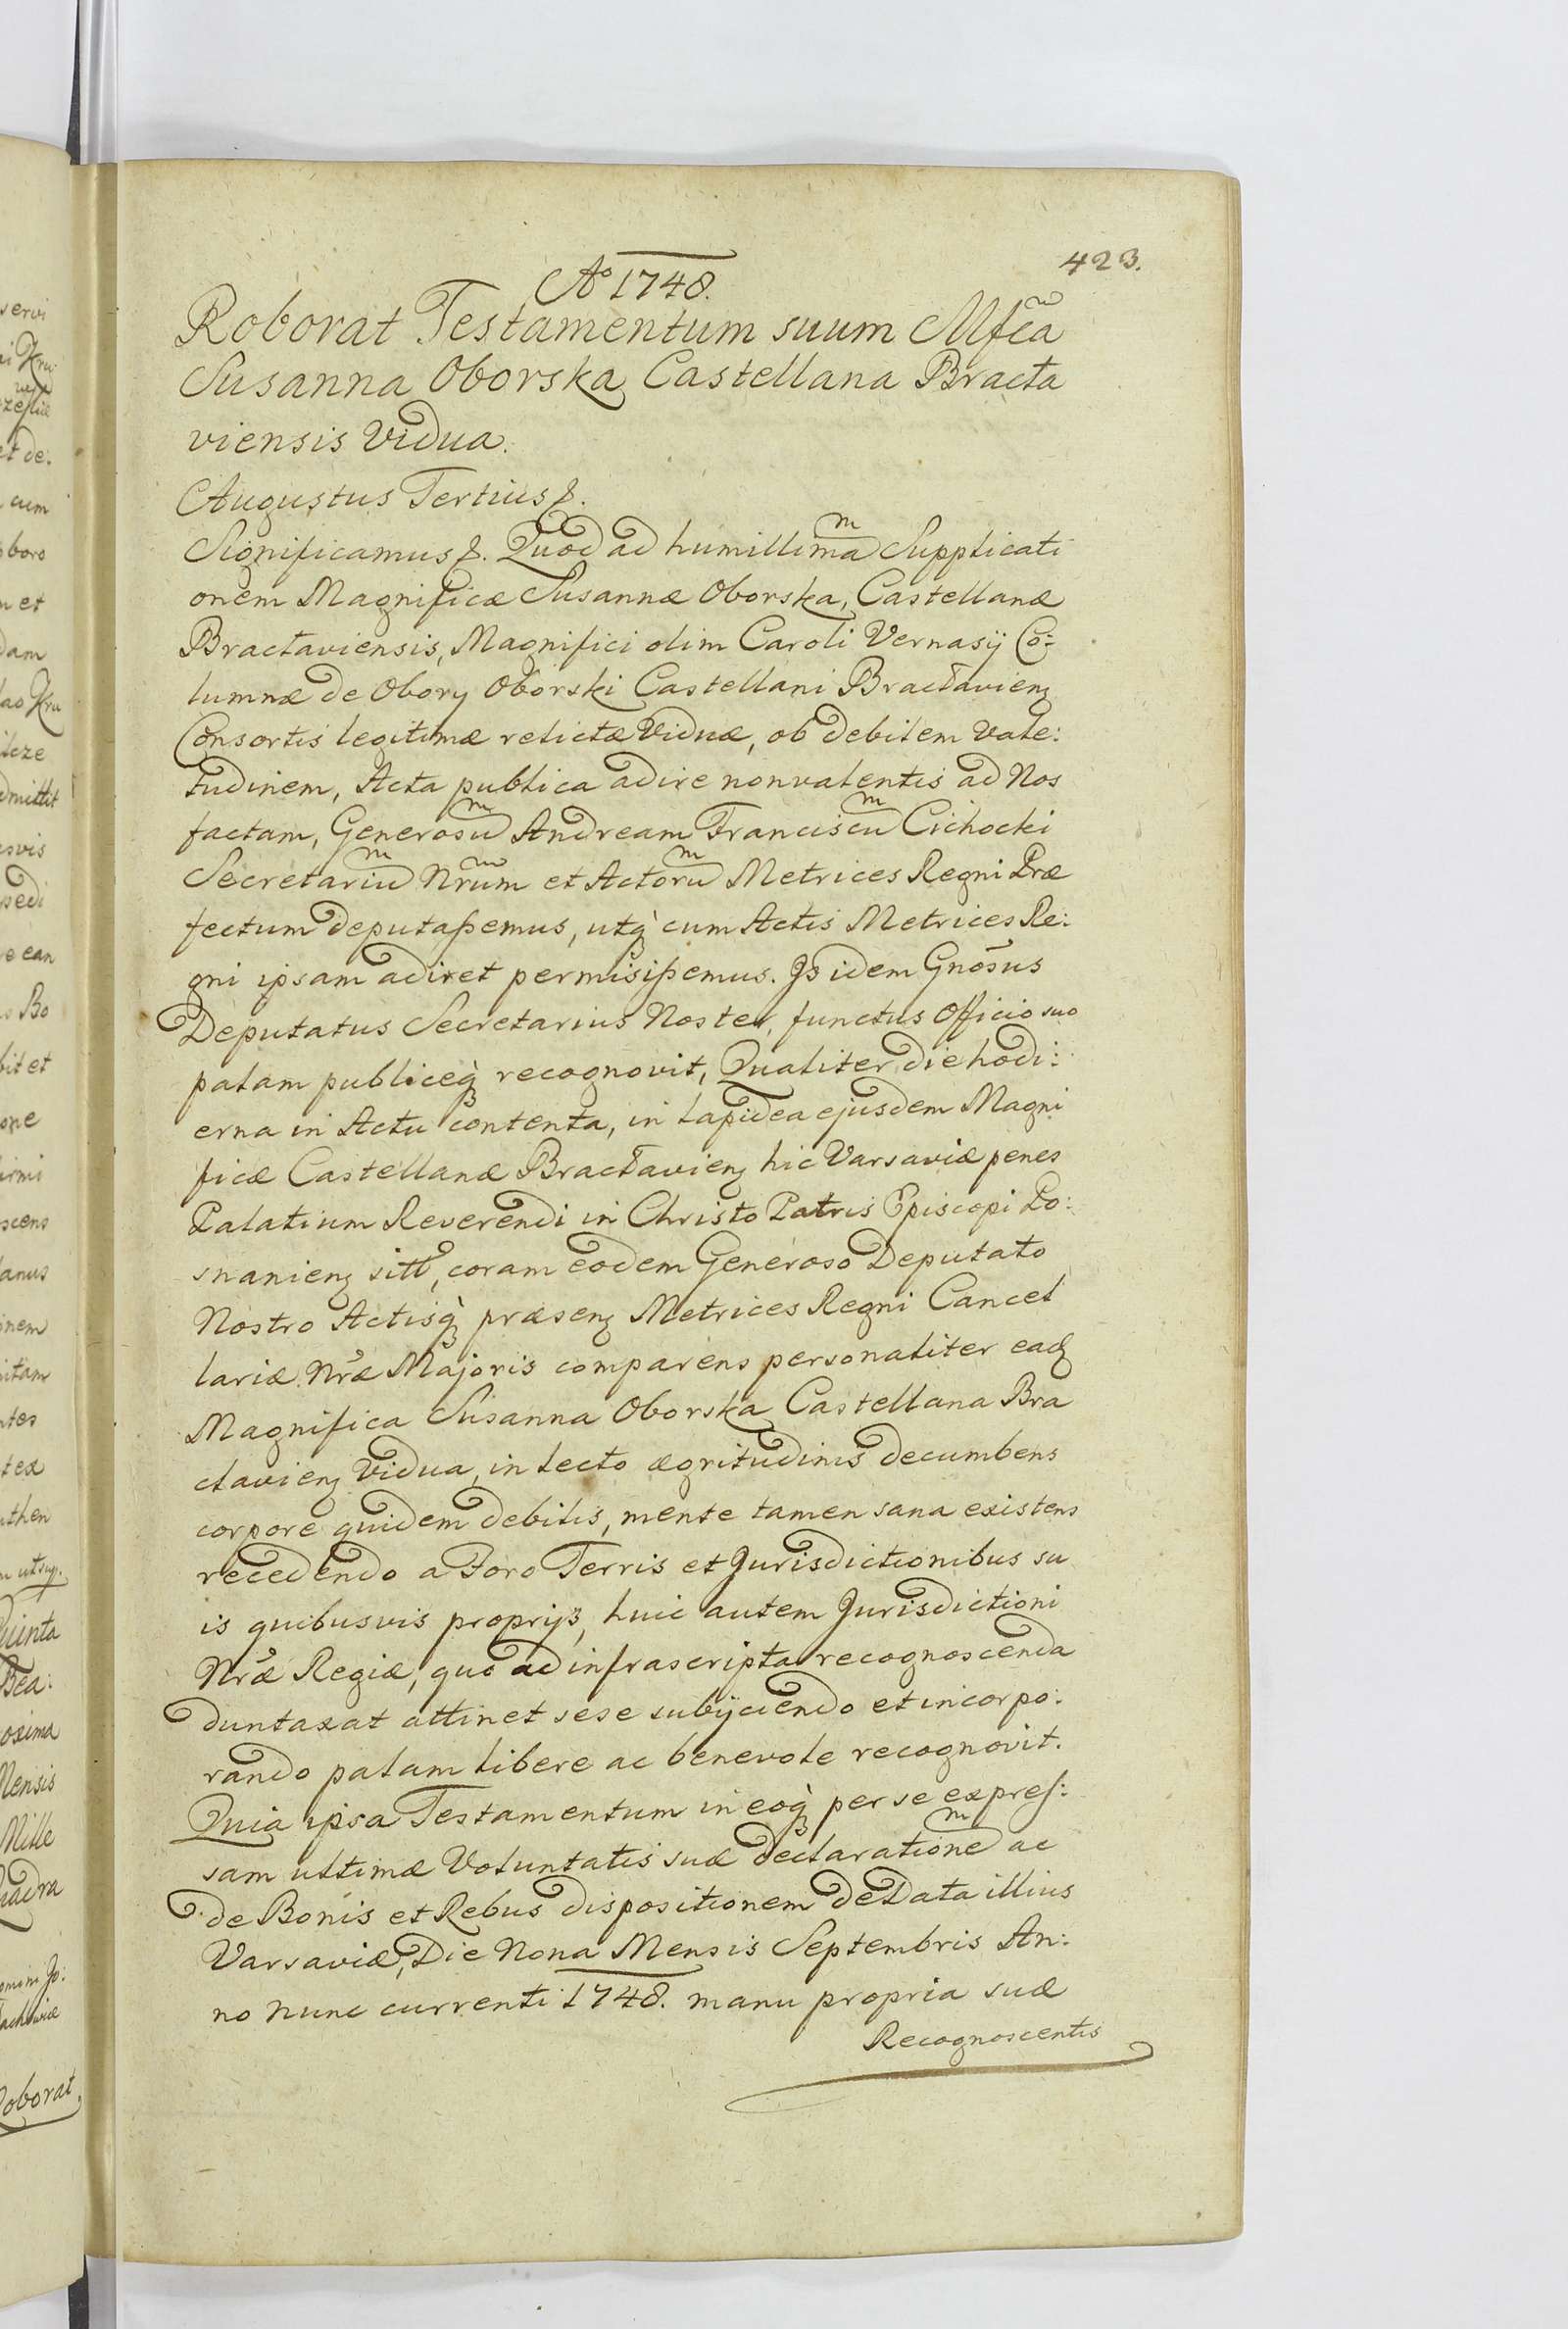 423.
Ao 1748.
Roborat Testamentum suum Mfca
Susanna Oborska Castellana Bracta
viensis Vidua.
Augustus Tertius &.
Significamus &. Quod ad humillimam Supplicati
onem Magnificæ Susannæ Oborska, Castellanæ
Bractaviensis, Magnifici olim Caroli Vernasij Co:
lumnæ de Obory Oborski Castellani Bractavieng
Consortis legitimæ relictæ Viduæ, ob debilem vale:
tudinem, Acta publica adire nonvalentis ad Nos
factam, Generosum Andream Franciscum Cichocki
Secretarium Nrum et Actorum Metrices Regni Præ
fectum deputaßemus, utq̀ cum Actis Metrices Re:
gni ipsam adiret permisißemus. Is idem Gnōsus
Deputatus Secretarius Noster, functus Officio suo
palam publiceq̀ recognovit, Qualiter die hodi:
erna in Actu contenta, in lapidea ejusdem Magni
ficæ Castellanæ Bractavieng hic Varsaviæ penes
Palatium Reverendi in Christo Patris Episcopi Po:
snanieng sitt, coram eodem Generoso Deputato
Nostro Actisq̀ præseng Metrices Regni Cancel
lariæ Nræ Majoris comparens personaliter eadg
Magnifica Susanna Oborska Castellana Bra
ctavieng Vidua, in lecto ægritudinis decumbens
corpore quidem debilis, mente tamen sana existens
recedendo a Foro Terris et Jurisdictionibus su
is quibusvis proprijs, huic autem Jurisdictioni
Nræ Regiæ, quo ad infrascripta recognoscenda
duntaxat attinet sese subijciendo et incorpo:
rando palam libere ac benevole recognovit.
Quia ipsa Testamentum in eoq̀ per se expres:
sam ultimæ Voluntatis suæ declarationem ac
de Bonis et Rebus dispositionem de Data illius
Varsaviæ, Die Nona Mensis Septembris An:
no nunc currenti 1748. manu propria suæ
Recognoscentis